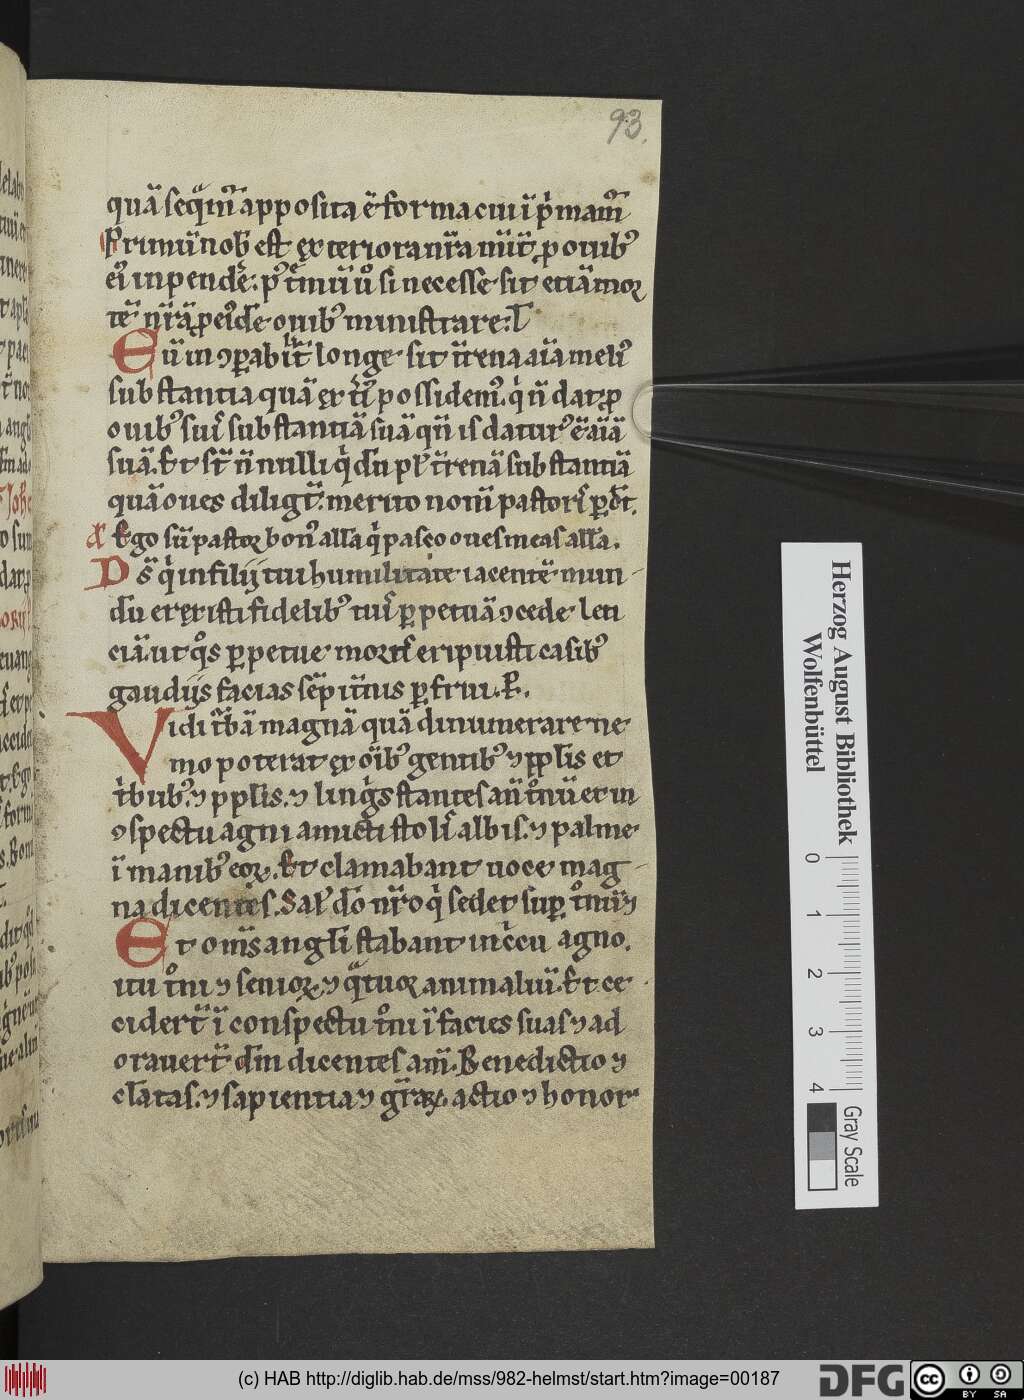 93.
quā seq̄m̄ apposita ē forma cui īp̄mam̄
Primū nob̄ est exteriora nr̄a mīt̄ p ouibꝰ
eiꝰ inpendē: pꝰt̄mū ū si necesse sit etiā moꝝ
tē nr̄ā p eiꝰdē ouibꝰ ministrare. L
Cū inꝯparabilit̄ longe sit t̄rena aīa meliꝰ
substantia quā ext̄iꝰ possidemꝰ. q̄ n̄ dat p
ouibꝰ suis substantiā suā qn̄ is daturꝰ ē aīā
suā. Et st̄ n̄nulli q̄ dū plꝰ t̄renā substantiā
quā oues diligt̄: merito nom̄ pastorꝭ p̱dt̄.
Ego sū pastoꝛ bonꝰ all̄a q̄ pasco oues meas all̄a.
Ds̄ q̄ in filij tui humilitate iacentē mun
dū erexisti fidelibꝰ tuis p̱petuā ꝯcede leti
ciā. ut qͦs p̱petue mortꝭ eripuisti casibꝰ
gaudijs facias sēpit̄nis p̱frui. P.
Vidi t̄bā magnā quā dinumerare ne
mo poterat ex oīb; gentibꝰ ⁊ pplis et
t̄bubꝰ. ⁊ pplis. ⁊ lingꝭs stantes an̄ t̄nū et in
ꝯspectu agni amicti stolis albis. ⁊ palme
ī manibꝰ eoꝝ. Et clamabant uoce mag
na dicentes. Salꝰ dō nr̄o q̄ sedet sup̱ t̄nū ⁊
Et om̄s angl̄i stabant in c̄cu agno.
itu t̄ni ⁊ senioꝝ. ⁊ q̄tuoꝛ animaliū. Et ce
ciderūt ī conspectu t̄ni ī facies suas ⁊ ad
orauert̄ dm̄ dicentes am̄. Benedictio ⁊
cl̄atas. ⁊ sapientia ⁊ gr̄aꝝ actio ⁊ honor
Herzog August Bibliothek
Wolfenbüttel
0 1 2 3 4
Gray Scale
(c) HAB http://diglib.hab.de/mss/982-helmst/start.htm?image=00187
DFG
cc BY SA